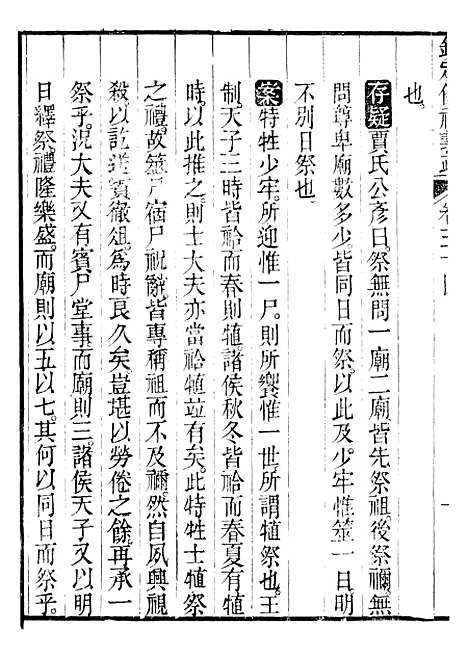 欽定儀禮義疏 卷三十四
也。
存疑賈氏公彥曰。祭無問一廟二廟。皆先祭祖。後祭禰。無
問尊卑廟數多少。皆同日而祭。以此及少牢惟筮一日。明
不別日祭也。
案特牲少牢。所迎惟一尸。則所饗惟一世。所謂犆祭也。王
制。天子三時皆祫而春則犆。諸侯秋冬皆祫而春夏有犆
時。以此推之。則士大夫亦當祫犆竝有矣。此特牲士犆祭
之禮。故筮尸宿尸祝饗。皆專稱祖而不及禰。然自夙興視
殺。以訖送賓徹俎。爲時良久矣。豈堪以勞倦之餘。再承一
祭乎。況大夫又有賓尸堂事。而廟則三。諸侯天子又以明
日繹祭。禮隆樂盛。而廟則以五以七。其何以同日而祭乎。